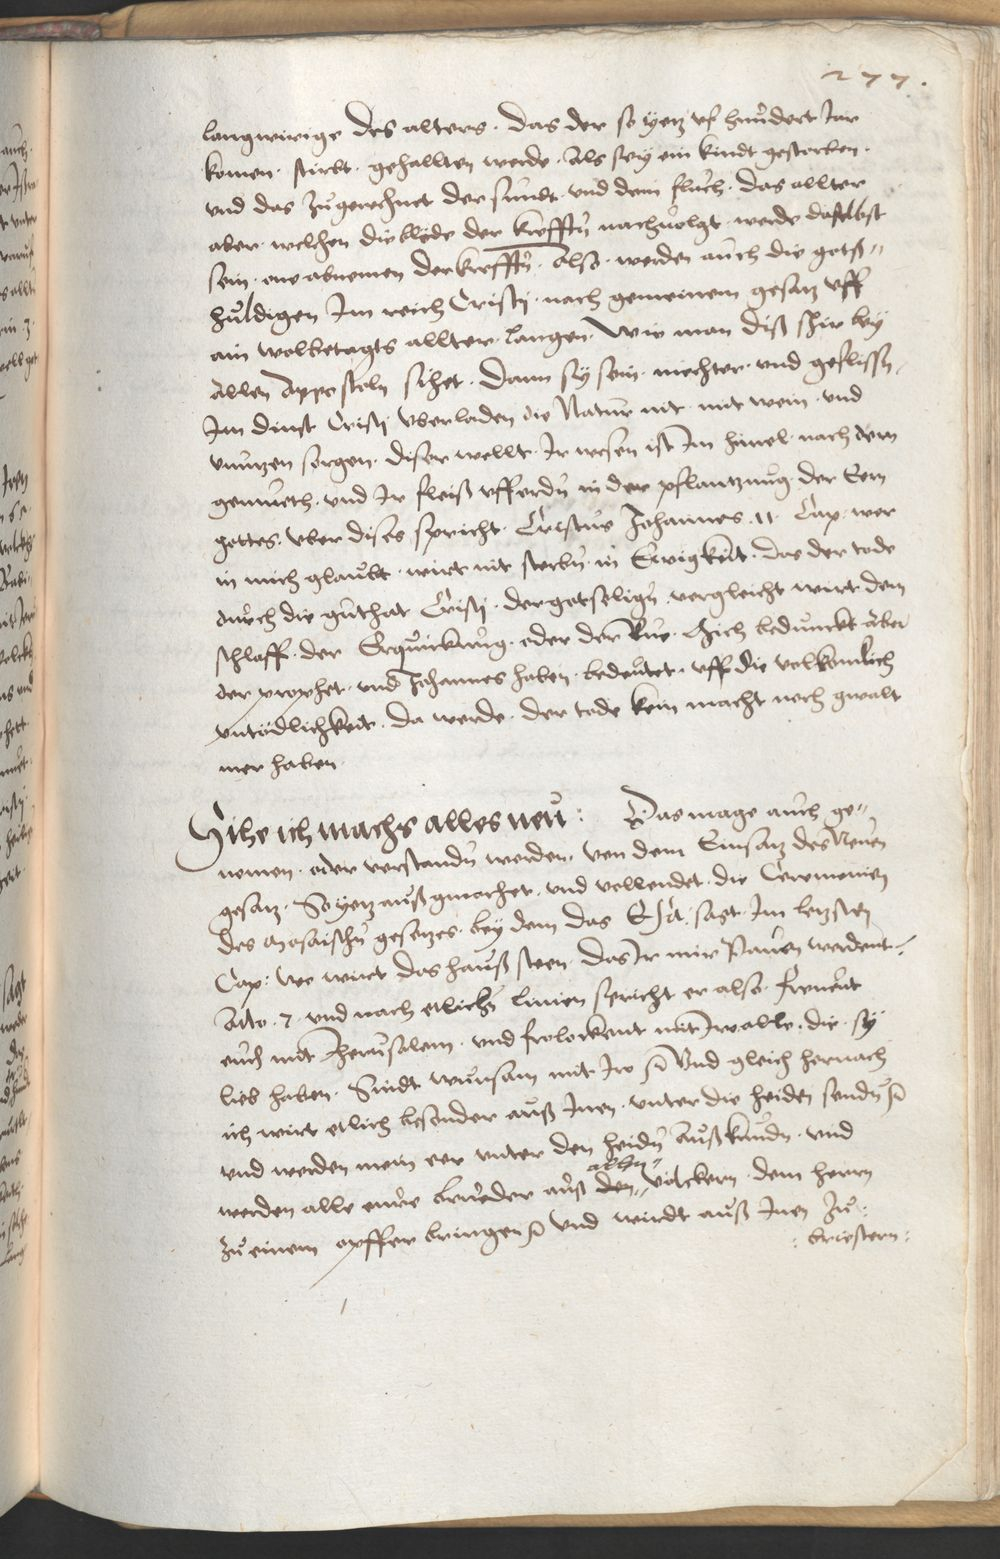 277.
langwirige des alters. Das der so yetz uf hundert Jar
komen. stirbt. gehallten werde. Als sey ein kindt gestorben.
vnd das zugerechnet der sundt. vnd dem fluch. das allter
aber. welchen die blöde der krefften nachuolgt. werde daselbst
sein. one abnemen der krefften. Also. werden auch die gots=
huldigen Im reich Cristj. nach gemeinem gesatz vff
ain wolbetagts allter langen. Wie man diß schir bey
allen Apposteln sihet. Dann sy sein. niechter. vnd geflissen.
Im dinst Cristj vberladen die Natur nit. mit wein. vnd
vnutzen sorgen. diser wellt. Ir wesen ist Im himel. nach dem
gemueth. vnd Ir fleiß vff erden in der pflantzung. der Eern
gottes. vber dises spricht. Cristus Johannes. 11. Cap. wer
in mich glaubt. wirt nit sterben. in Ewigkeit. das der tode
durch die guthat Cristj. der gotseligen. vergleicht wirt dem
schlaff. der Erquickung. oder der Rue. Mich beduncht aber
der prophet. vnd Johannes haben. bedeutet. vff die volkomlich
vntödlichkeit. da werde. der tode kein macht noch gwalt
mer haben.
Sihe ich machs alles neu: Das mage auch ge=
nomen. oder verstanden werden. von dem Einsatz des Neuen
gesatz. So yetz außgmachet. vnd vollendet. die Ceremonien
des Mosaischen gesetzes. bey dem das Esa. sagt. Im letzsten
Cap: wo wirt das hauß steen. das Ir mir Bauen werdent.
Atto. 7. vnd nach etlichen linien spricht er also. freuent
euch mit Jherusalem. vnd frolockent mit Ir alle. die. sy
lieb haben. Sindt wunsam mit Ir Vnd gleich hernach
ich wirt etlich besonder auß Inen. vnter die heiden senden
vnd werden mein eer vnter den heiden Außkünden. vnd
werden alle eure brueder auß allen völckern. dem herrn
zu einem opffer bringen Vnd wirdt auß Inen Zu:
: briestern: